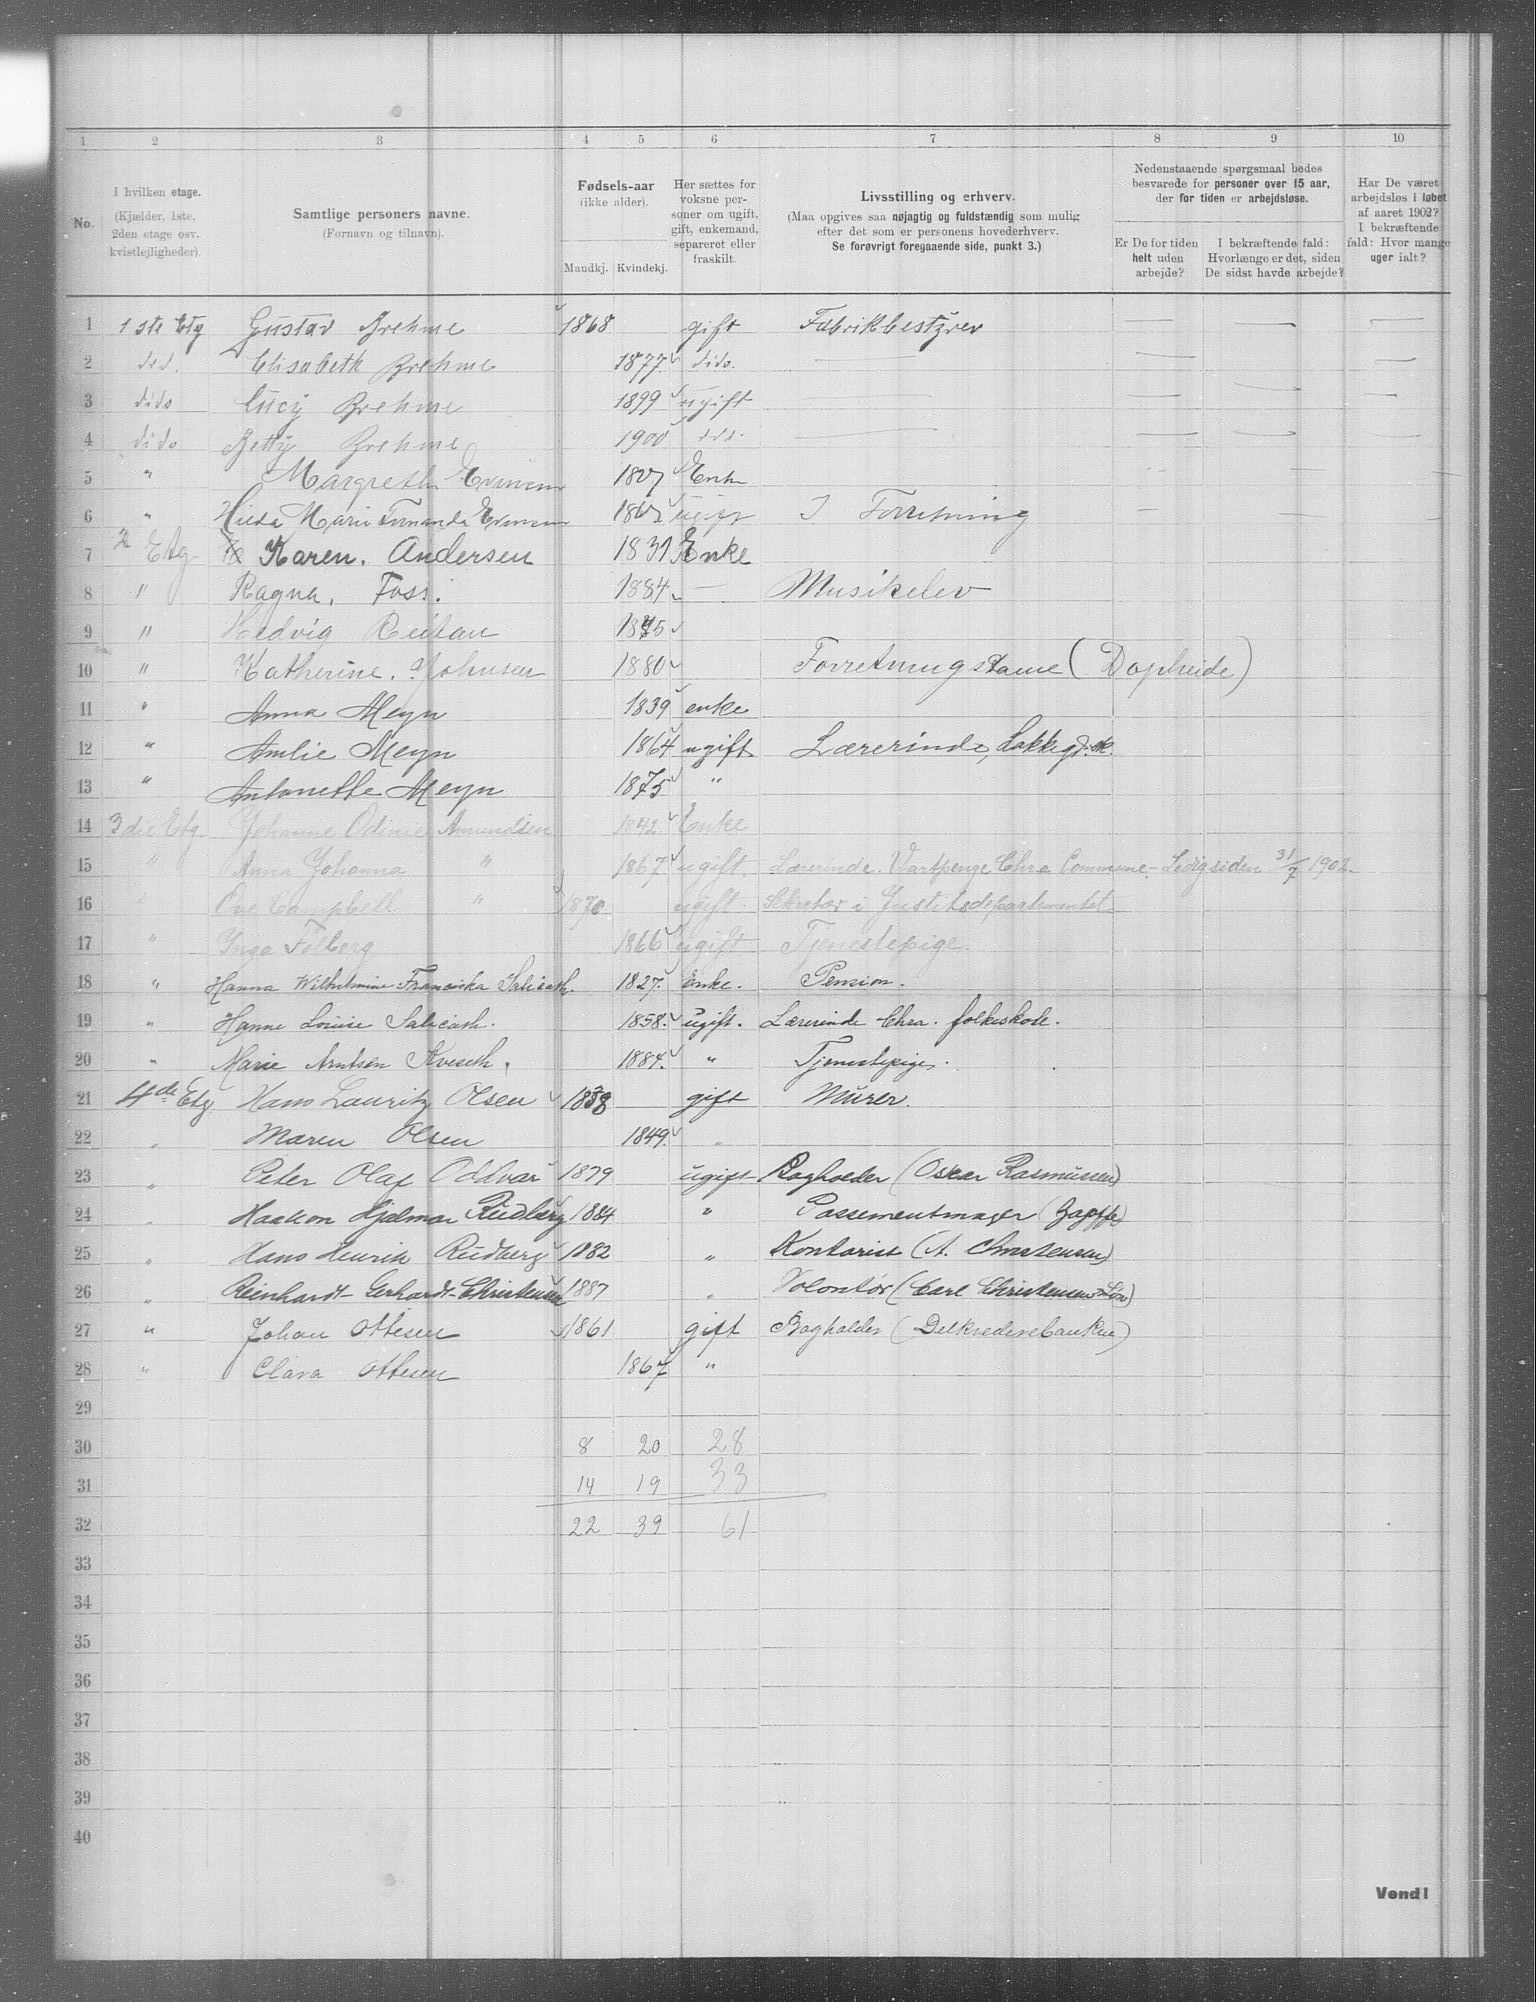 1 2 3 4 5 6 7 8 9 10
No.
I hvilken etage. (Kjælder, 1ste. 2den etage osv. kvistlejligheder).
Samtlige personers navne. (Fornavn og tilnavn).
Fødsels-aar (ikke alder).
Mandkj. Kvindekj.
Her sættes for voksne personer om ugift, gift, enkemand, separeret eller fraskilt.
Livsstilling og erhverv.
(Maa opgives saa nøjagtig og fuldstændig som mulig efter det som er personens hovederhverv. Se forøvrigt foregaaende side, punkt 3.)
Nedenstaaende spørgsmaal bedes besvarede for personer over 15 aar, der for tiden er arbejdsløse.
Er De for tiden helt uden arbejde?
I bekræftende fald: Hvorlænge er det, siden De sidst havde arbejde?
Har De været arbejdsløs i løbet af aaret 1902? I bekræftende fald: Hvor mange uger ialt?
1 1ste Etg Gustav Brehme 1868 gift Fabrikbestyrer — — —
2 do. Elisabeth Brehme 1877 dido. — — —
3 dido Lucy Brehme 1899 ugift — — —
4 dido Betty Brehme 1900 do. — — — —
5 " Margreth 1827 Enke
6 " Hilda Marie Fernanda ugift I Forretning
7 2 Etg Karen. Andersen 1831 Enke
8 " Ragna. Foss. 1884 — Musikelev
9 " Hedvig Reitan
10 " Katherine. Johnsen 1880 Forretningsdame (Dopheide)
11 " Anna Meyn 1839 enke
12 " Amlie Meyn 1864 ugift Lærerinde,
13 " Antonette Meyn 1875 "
14 3die Etg. Johanne Odinie Amundsen 1842 Enke
15 " Anna Johanna " 1867 ugift. Lærerinde. Vartpenge Chra Commune - Ledig siden 31/7 1902.
16 " Ove Campbell " 1870 ugift. Sekretær i Justitsdepartementet
17 " Inga Folberg 1866 ugift Tjenestepige.
18 " Hanna Wilhelmine Franciska Salicath. 1827. Enke. Pension.
19 " Hanne Louise Salicath. 1858. ugift. Lærerinde Chra. folkeskole.
20 " Marie Arntsen Kveseth. 1884. " Tjenestepige.
21 4de Etg Hans Lauritz Olsen 1838 gift Murer.
22 " Maren Olsen 1849. "
23 " Peter Olaf Oddvar 1879 ugift Bogholder (Oscar Rasmussen)
24 " Haakon Hjalmar Rudberg 1884 " Possementmager (Zapffe)
25 " Hans Henrik Rudberg 1882 " Kontorist (A. Christensen)
26 " Reinhardt Gerhardt Christensen 1887 " Volontør (Carl Christensen & Søn)
27 " Johan Ottesen 1861 gift Bogholder (Delkrederebanken)
28 " Clara Ottesen 1867 "
29
30 8 20 28
31 14 19 33
32 22 39 61
33
34
35
36
37
38
39
40
Vend!